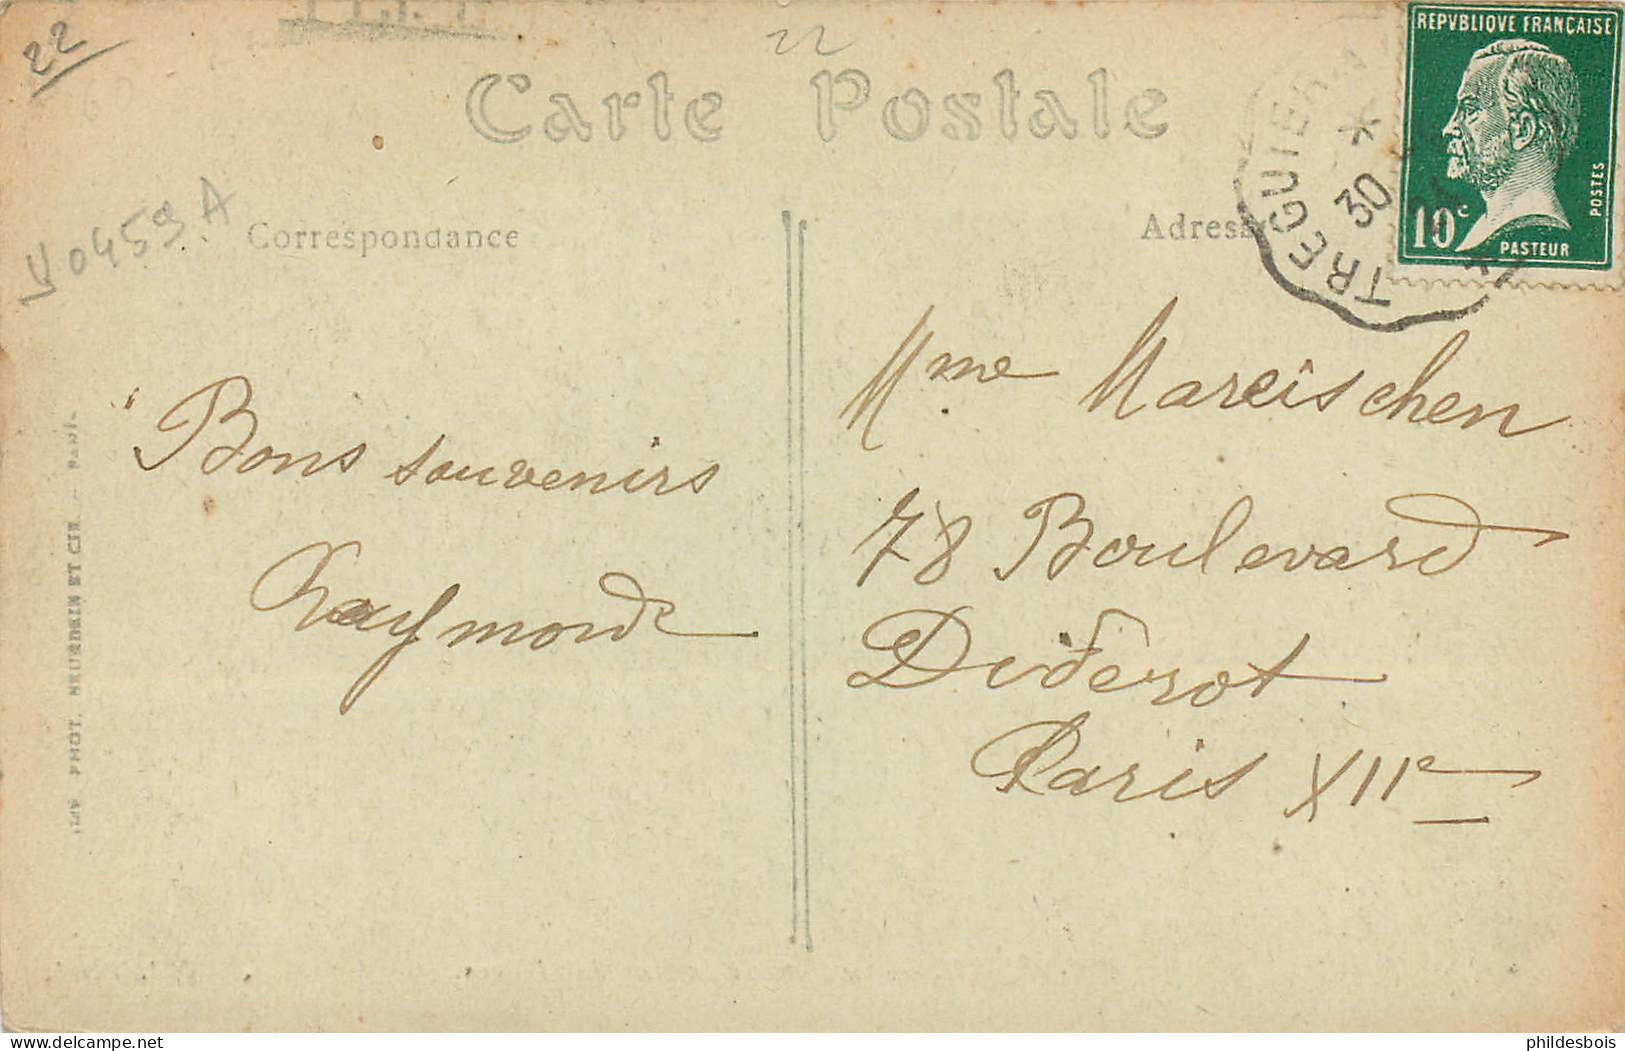 22
22
Carte Postale
REPVBLIQVE FRANÇAISE
10c
POSTES
PASTEUR
TREGUIER
30
V0459A
Correspondance
Adresse
Bons souvenirs
Raymonde
Mme Mareischen
78 Boulevard
Diderot
Paris XIIe
PHOT. NEURDEIN ET CIE. — PARIS
delcampe.net
phild​esbois